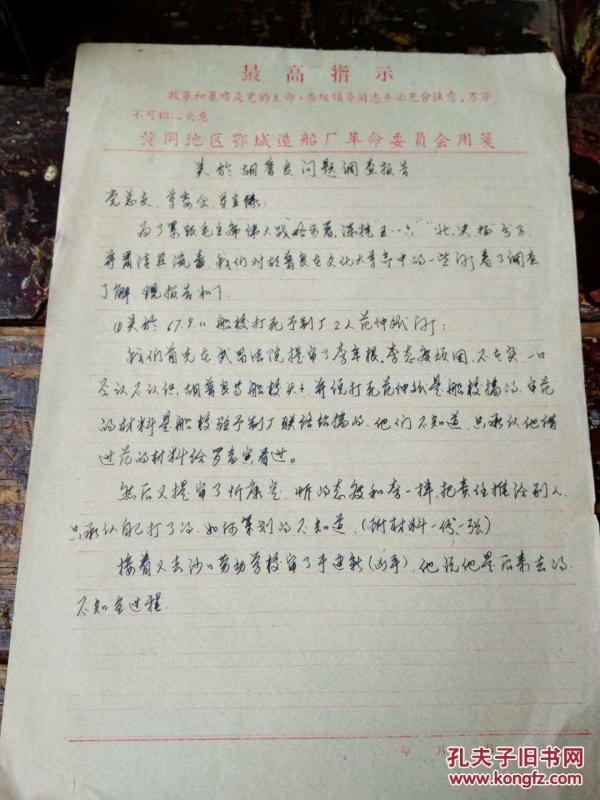 最高指示
政策和策略是党的生命，各级领导同志务必充分注意，万万
不可粗心大意
黄冈地区鄂城造船厂革命委员会用笺
关於胡普良问题调查报告
党总支、革委会、军宣队：
为了紧跟毛主席伟大战略步署，深挖"五·一六"
寻肃清其流毒，我们对胡普良在文化大革命中的一些问题进行了调查
了解 现报告如下
(1)关於67.9.11船校打死予制厂工人范仲斌问题：
我们首先在武昌法院提审了李辛根，李态度顽固，不老实，一口
否认不认识胡普良与船校头头，并说打死范仲斌是船校搞的，审范
的材料是船校强予制厂联络站搞的，他们不知道，只承认他借
过范的材料给罗看过。
然后又提审了忻康定，忻的态度和李一样，把责任推给别人，
只承认自己打了的，如何策划的不知道，（附材料一份一张）
接着又去沙口劳动学校审了于建新，他说他是后来去的，
不知全过程。
年 月
孔夫子旧书网
www.kongfz.com